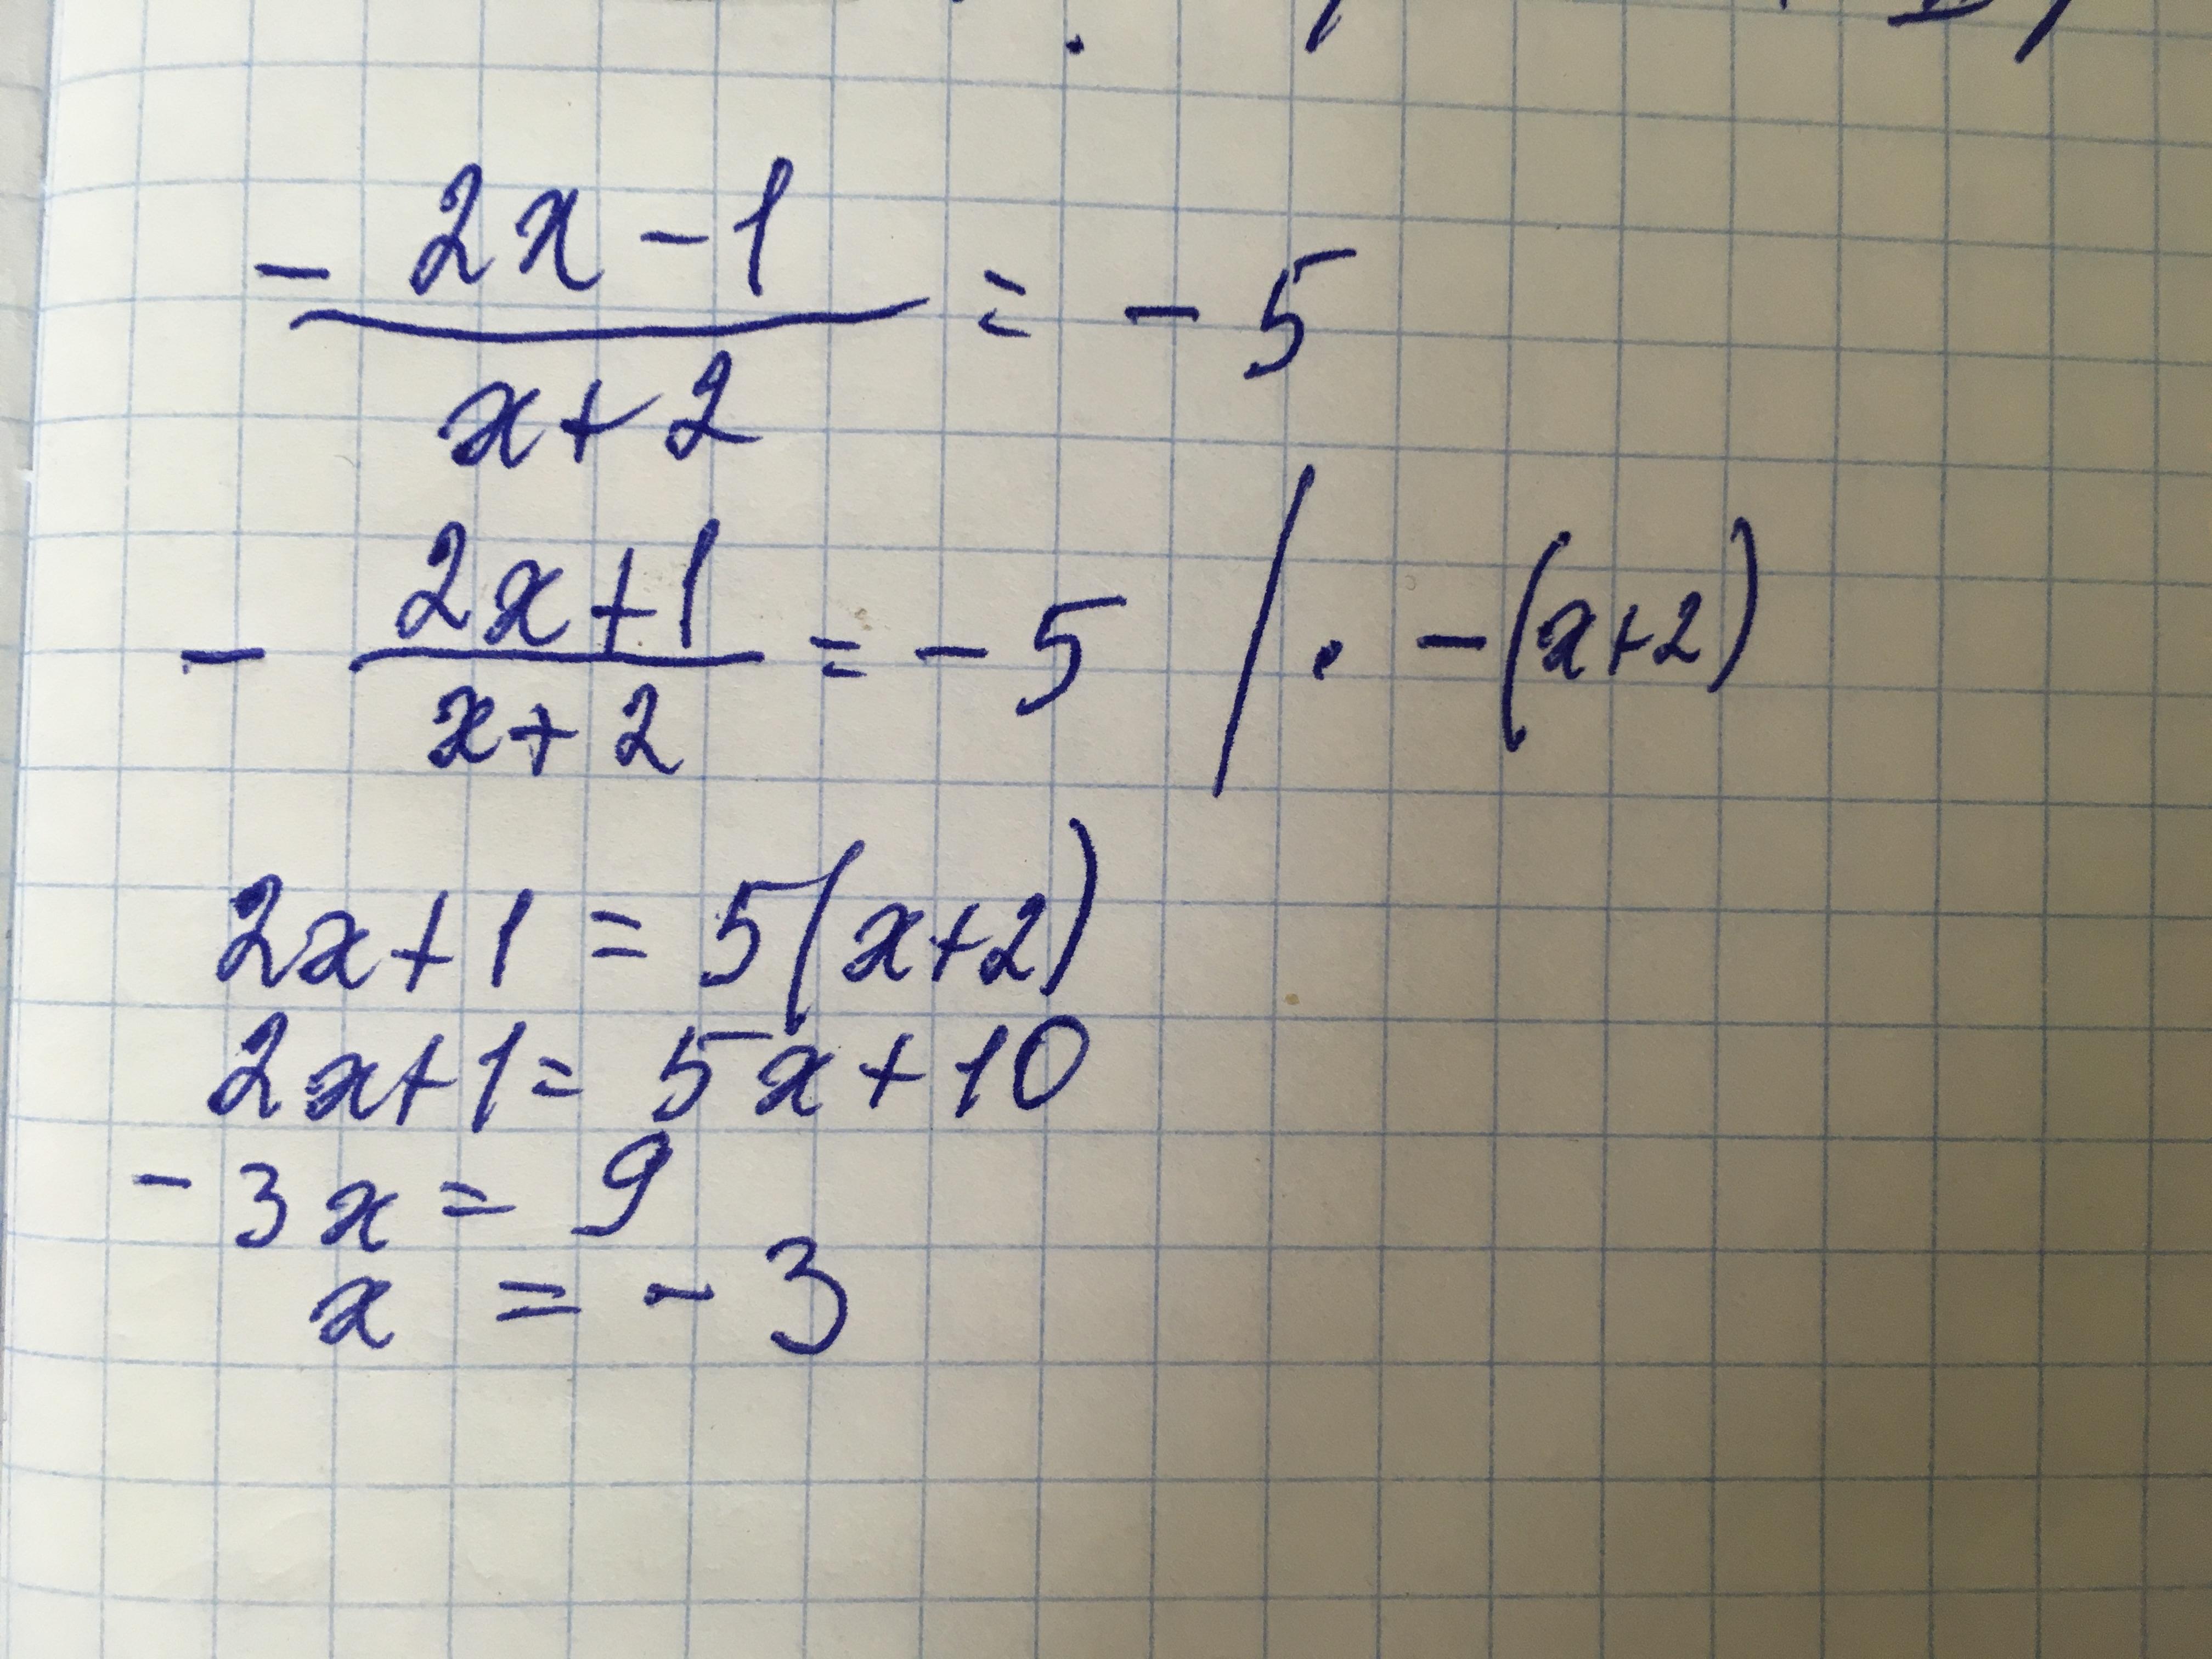 -2x-1/x+2 = -5
- 2x+1/x+2 = -5 / · -(x+2)
2x+1 = 5(x+2)
2x+1= 5x+10
-3x = 9
x = -3